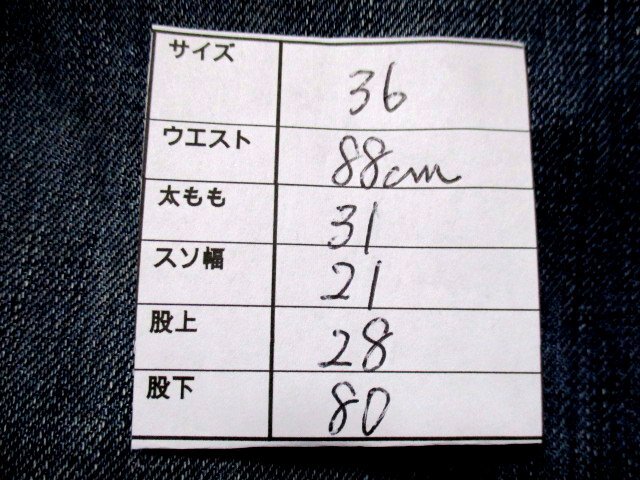 サイズ 36
ウエスト 88cm
太もも 31
スソ幅 21
股上 28
股下 80